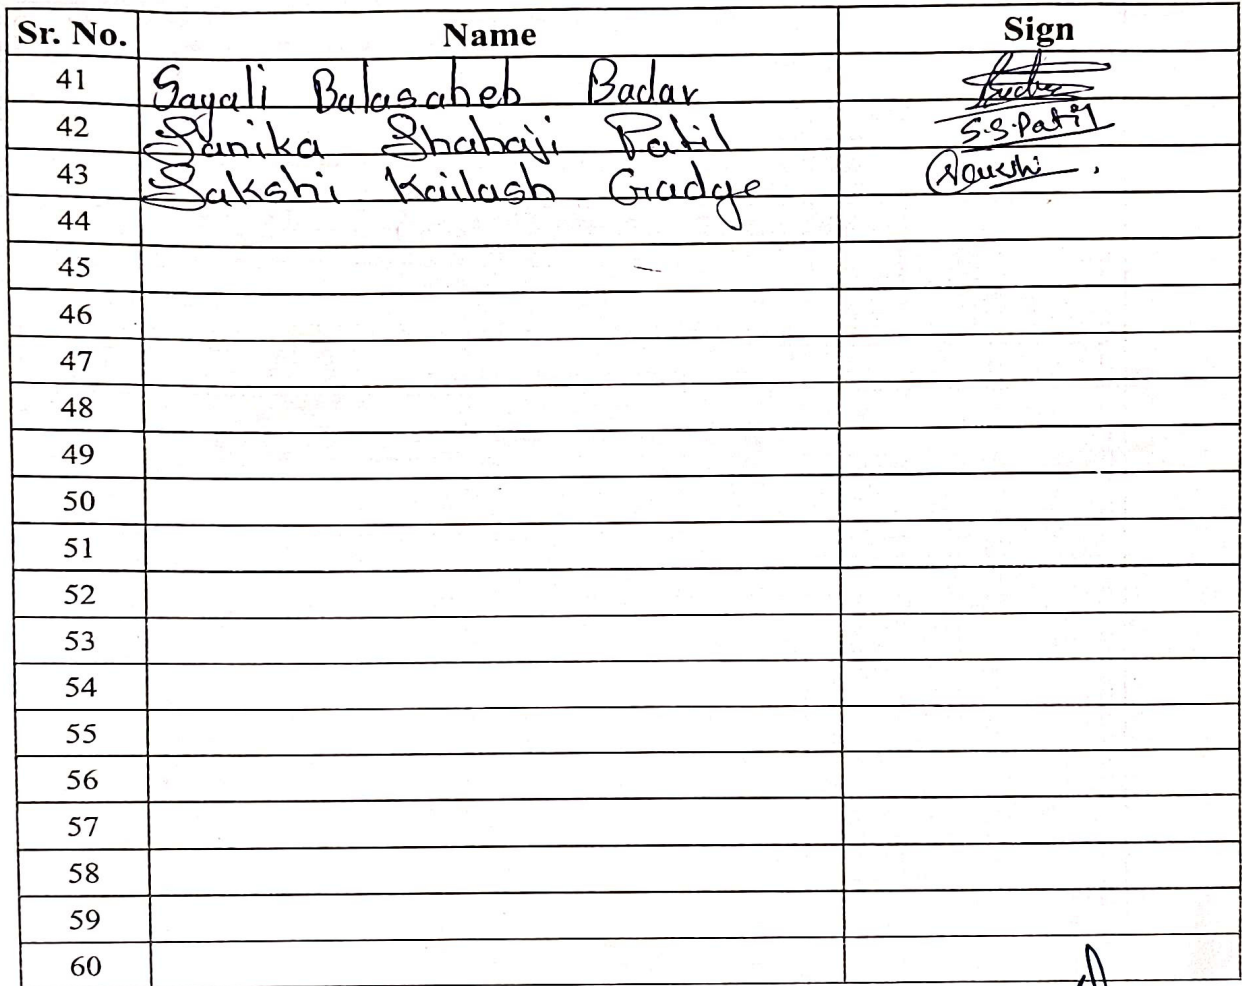 Sr. No. Name Sign
41 Sayali Balasaheb Badar
42 Sanika Shahaji Patil S.S.Patil
43 Sakshi Kailash Gadge Sakshi
44
45
46
47
48
49
50
51
52
53
54
55
56
57
58
59
60